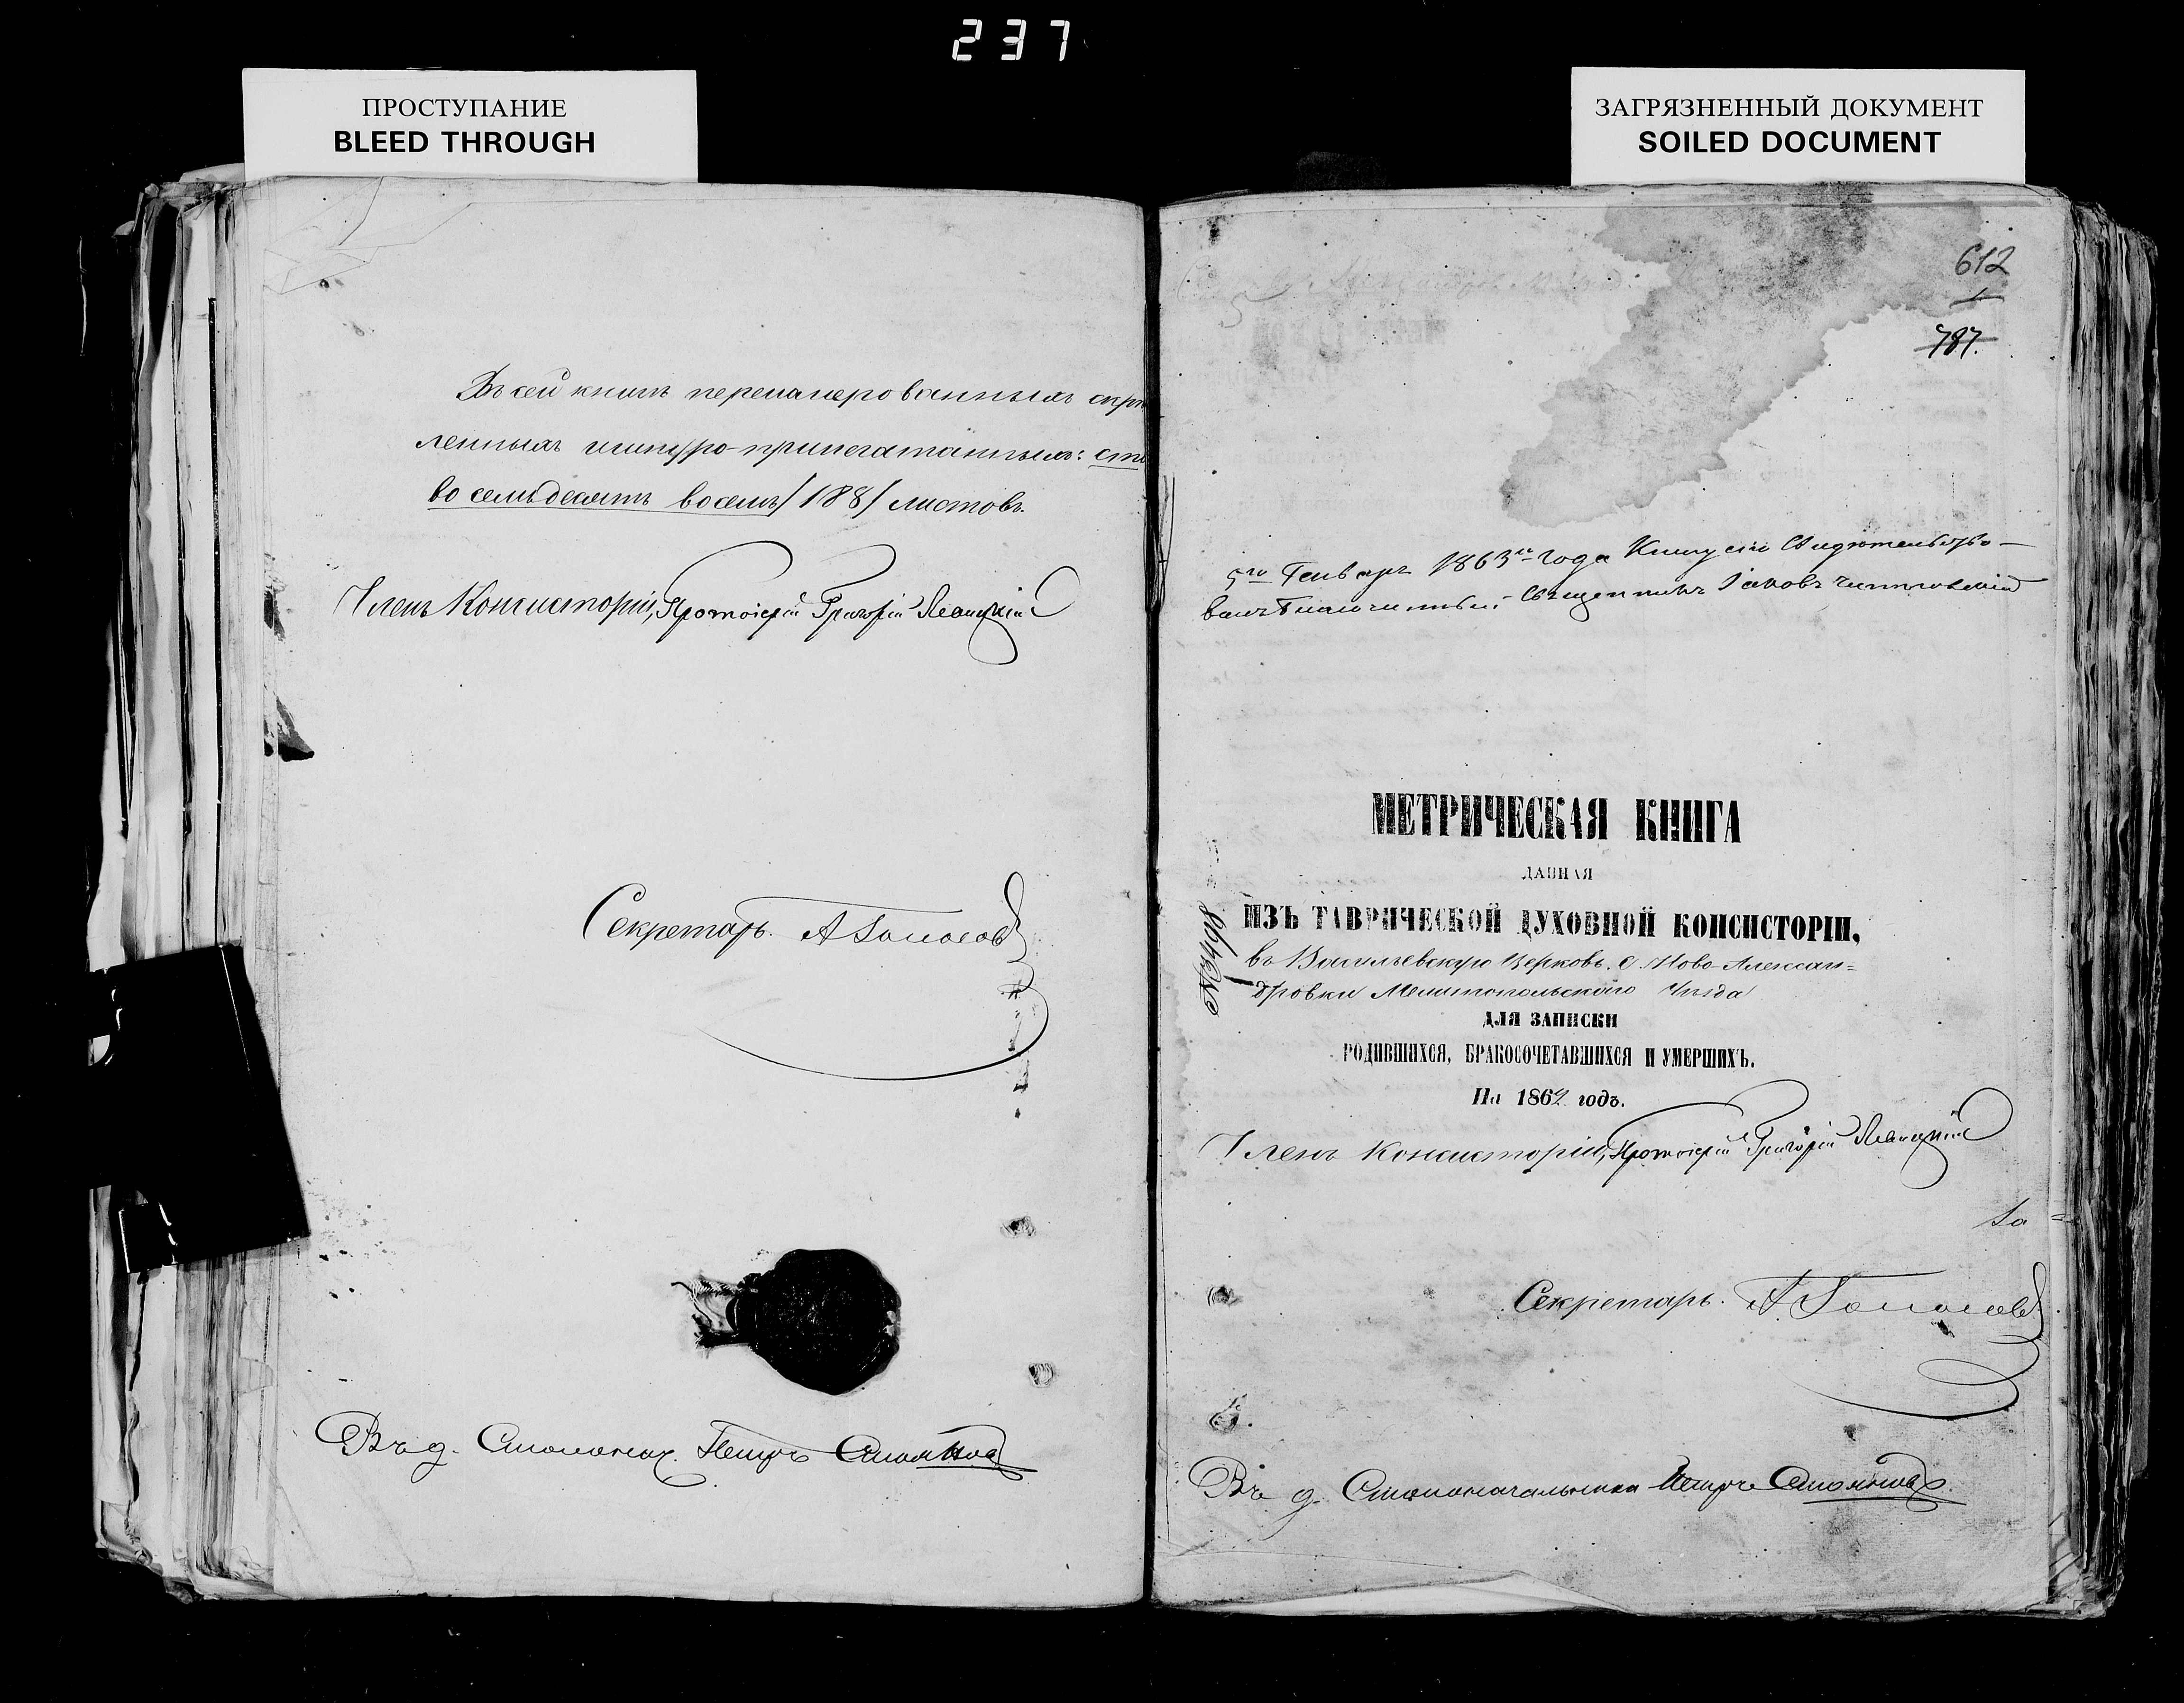 237
ПРОСТУПАНИЕ
BLEED THROUGH
ЗАГРЯЗНЕННЫЙ ДОКУМЕНТ
SOILED DOCUMENT
Въ сей книгѣ перенумерованныхъ скрѣп
ленныхъ шнуро-припечатанныхъ: сто
восемьдесятъ восемь /188/ листовъ.
Членъ Консисторіи, Протоіерей Григорій
Секретарь. А
Въ д. Столонач. Петръ
612
787.
5го Генваря 1863го года Книгу сію Свидѣтельство-
валъ Благочинный Священникъ Іаковъ
МЕТРИЧЕСКАЯ КНИГА
ДАННАЯ
ИЗЪ ТАВРИЧЕСКОЙ ДУХОВНОЙ КОНСИСТОРІИ,
№3498
въ Васильевскую Церковь с. Ново-Алексан=
дровки Мелитопольскаго Уѣзда
ДЛЯ ЗАПИСКИ
РОДИВШИХСЯ, БРАКОСОЧЕТАВШИХСЯ И УМЕРШИХЪ.
На 1862 годъ.
Членъ Консисторіи, Протоіерей Григорій
Секретарь. А
Въ д. Столоначальника Петръ